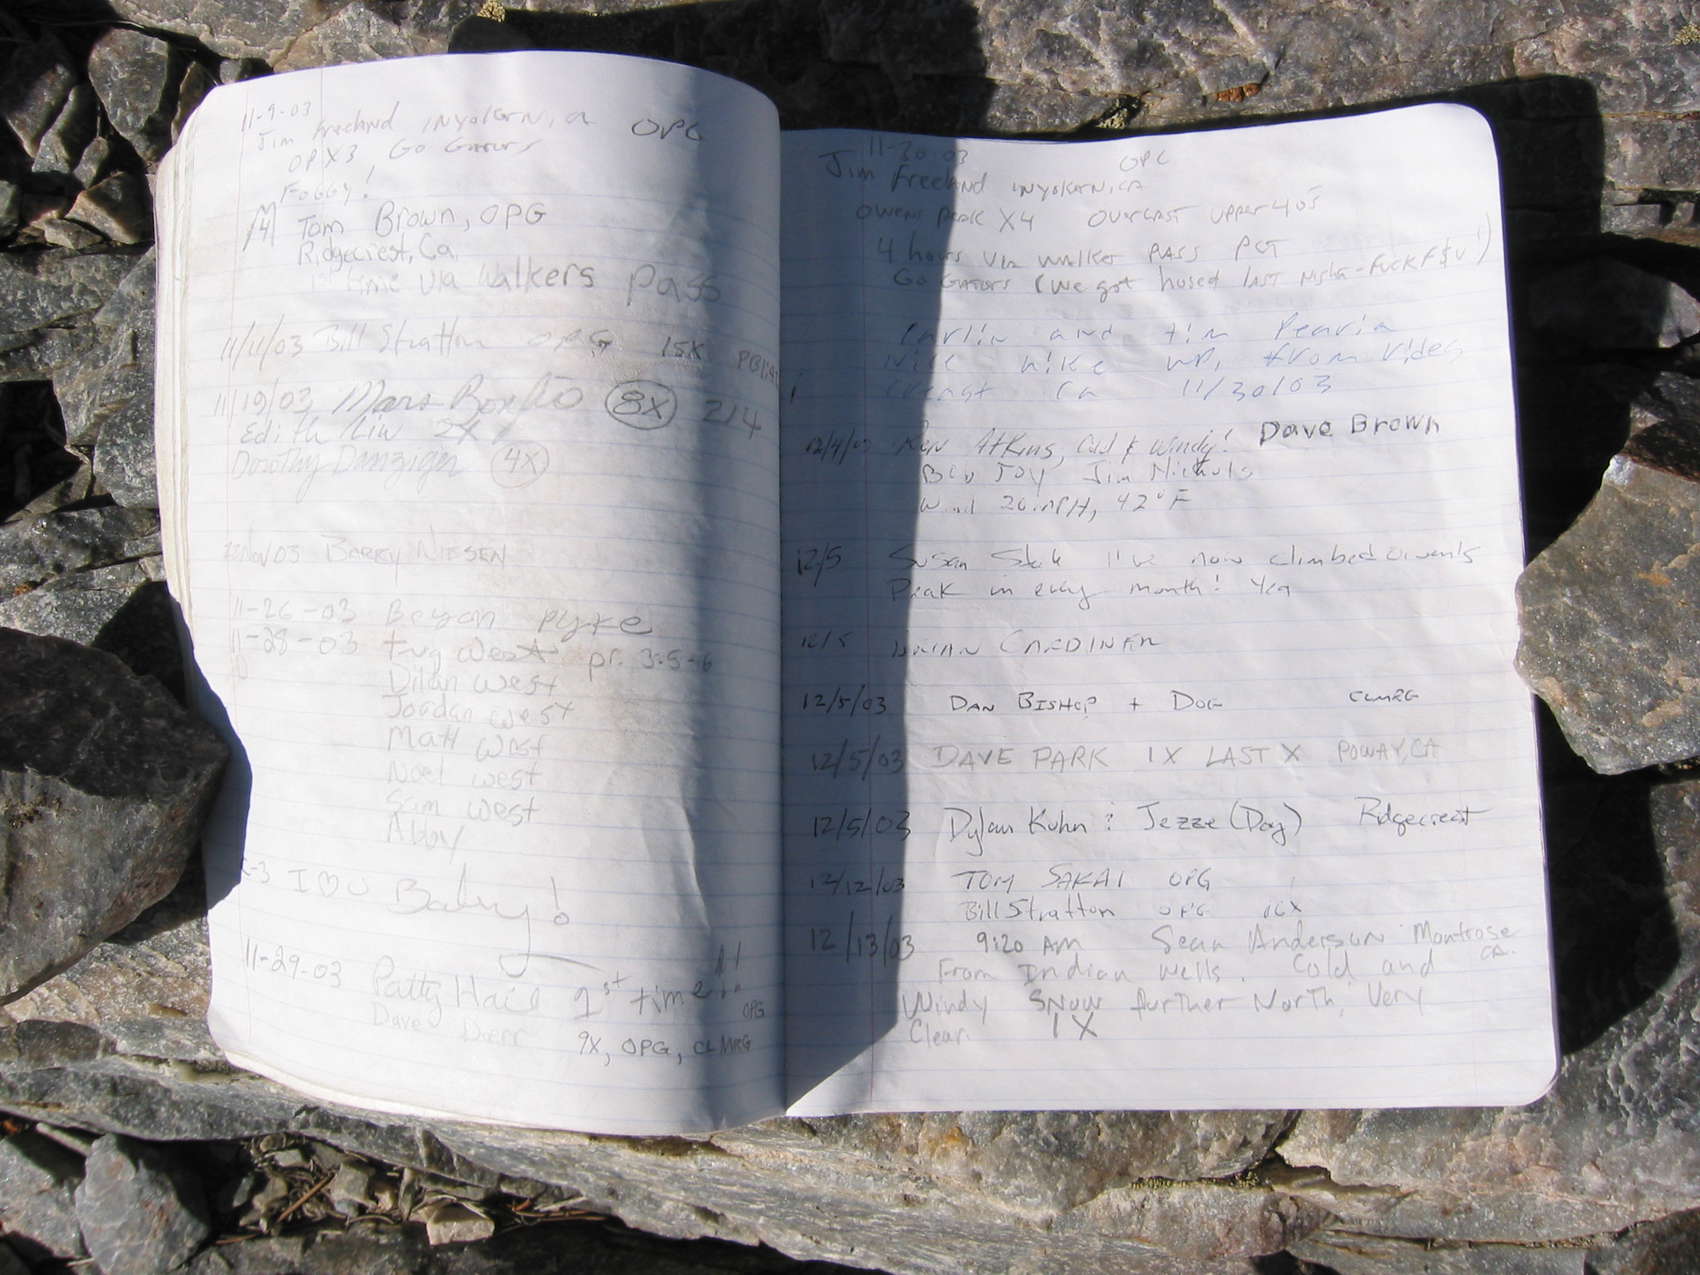 11-9-03
Jim Freeland INYOKERN, Ca OPG
OP X3 Go Gators
Foggy!
Tom Brown, OPG
Ridgecrest, Ca.
1st time via Walkers Pass
11/11/03 Bill Stratton OPG 15X
11/19/03 8X 214
Edith Liu 2X
Dorothy Danziger 4X
22 Nov 03 BARRY NIESEN
11-26-03 Beyan pyke
11-28-03 tug West pr. 3:5-6
Dilan West
Jordan West
Matt West
Noel West
Sam West
Abby
I ♡ U Baby!
11-29-03 Patty Hail 1st time!!
Dave Doerr 9X, OPG, CLMRG OPG
11-30-03 OPG
Jim Freeland INYOKERN, CA
Owens Peak X4 Overcast upper 40s
4 hours via walker PASS PCT
Go Gators (we got hosed last night - Fuck F$U!)
Carlin and tim Pearia
Nice hike up, from Ridge
Crenst Ca 11/30/03
12/4/03 Ken Atkins, Cold & Windy! Dave Brown
Bev Joy Jim Nichols
Wind 20 MPH, 42° F
12/5 Susan I've now climbed Owens
Peak in every month! Yea
12/5 BRIAN
12/5/03 DAN BISHOP + DOG CLMRG
12/5/03 DAVE PARK 1X LAST X POWAY, CA
12/5/03 Dylan Kuhn & Jezze (Dog) Ridgecrest
12/12/03 TOM SAKAI OPG
Bill Stratton OPG 16X
12/13/03 9:20 AM Sean Anderson Montrose CA.
From Indian Wells. Cold and
Windy Snow further North, Very
Clear. 1X